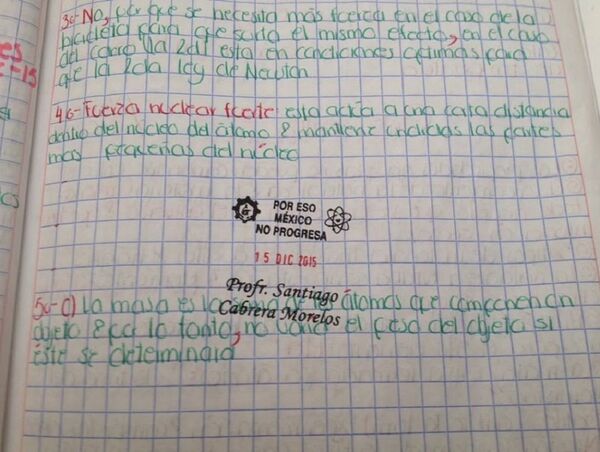 3.- No, por que se necesita más fuerza en el caso de la
bicicleta para que surta el mismo efecto, en el caso
del carro la 2da esta en condiciones optimas para
que la 2da ley de Newton
es
-15
4.- Fuerza nuclear fuerte: esta actúa a una corta distancia
dentro del núcleo del átomo & mantiene unidas las partes
mas pequeñas del núcleo
POR ESO
MÉXICO
NO PROGRESA
15 DIC 2015
Profr. Santiago
Cabrera Morelos
5.- c) La masa es los átomos que componen un
objeto & por lo tanto, no el peso del objeto si
éste se